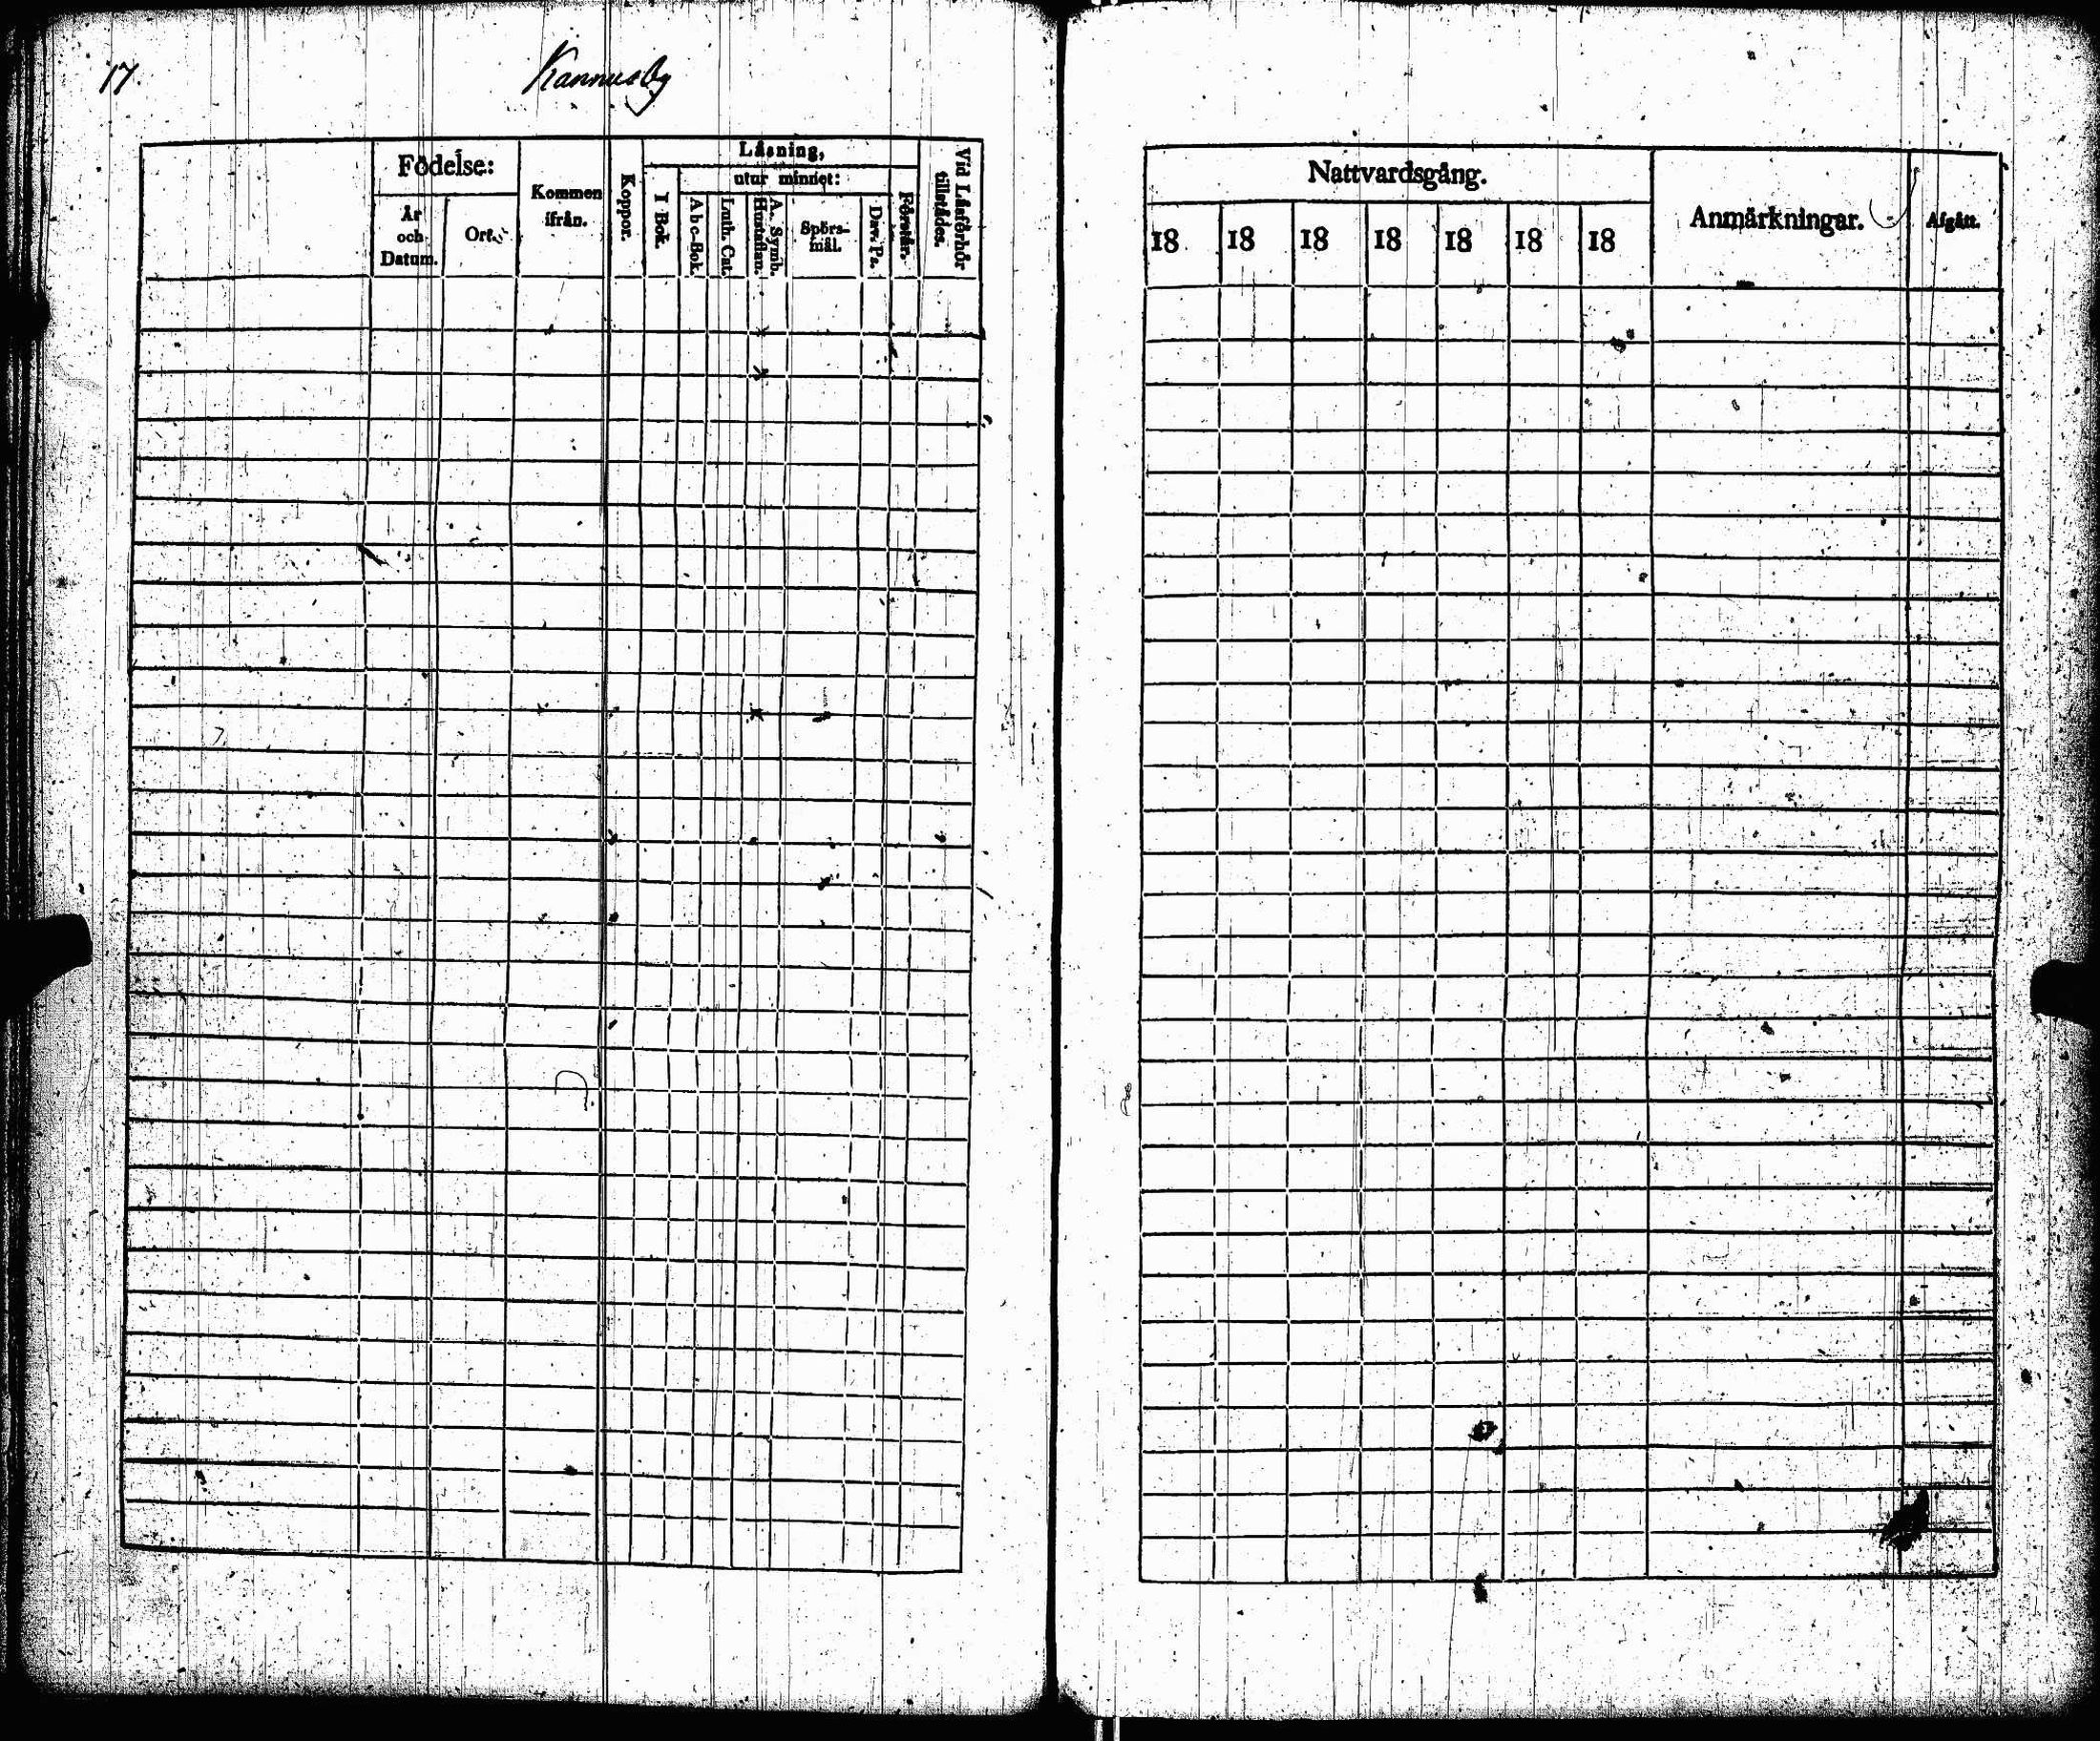 17.
Kannusby
Födelse:
År och Datum.
Ort.
Kommen ifrån.
Koppor.
Läsning,
I Bok.
utur minnet:
A b c-Bok.
Luth. Cat.
A. Symb. Hustaflan.
Spörs-mål.
Dav. Ps.
Förstår.
Vid Läsförhör tillstädes.
Nattvardsgång.
18 18 18 18 18 18 18
Anmärkningar.
Afgått.